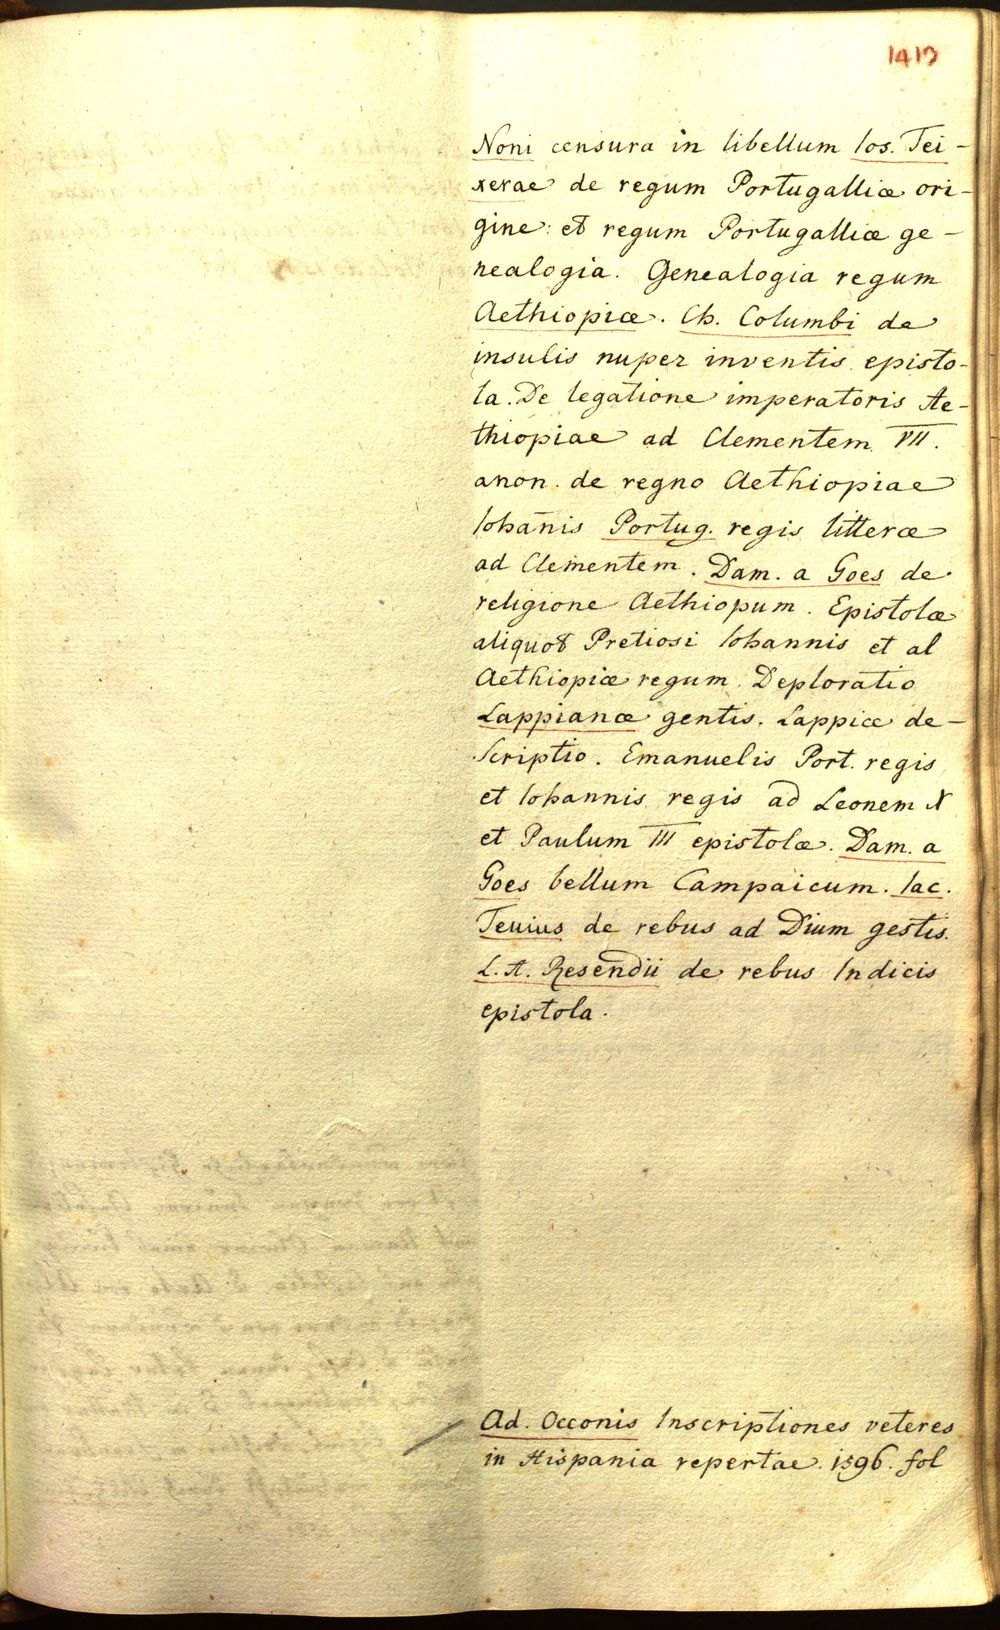 1413
Noni censura in libellum Ios. Tei-
xerae de regum Portugalliæ ori-
gine: et regum Portugalliæ ge-
nealogia. Genealogia regum
Aethiopiæ. Ch. Columbi de
insulis nuper inventis episto-
la. De legatione imperatoris Ae-
thiopiae ad Clementem VII.
anon. de regno Aethiopiae
Iohañis Portug. regis litteræ
ad Clementem. Dam. a Goes de
religione Aethiopum. Epistolæ
aliquot Pretiosi Iohannis et al
Aethiopiæ regum. Deploratio
Lappianæ gentis. Lappiæ de-
scriptio. Emanuelis Port. regis
et Iohannis regis ad Leonem X
et Paulum III epistolæ. Dam. a
Goes bellum Campaicum. Iac.
Tevius de rebus ad Dium gestis.
L. A. Resendii de rebus Indicis
epistola.
Ad. Occonis Inscriptiones veteres
in Hispania repertae. 1596. fol